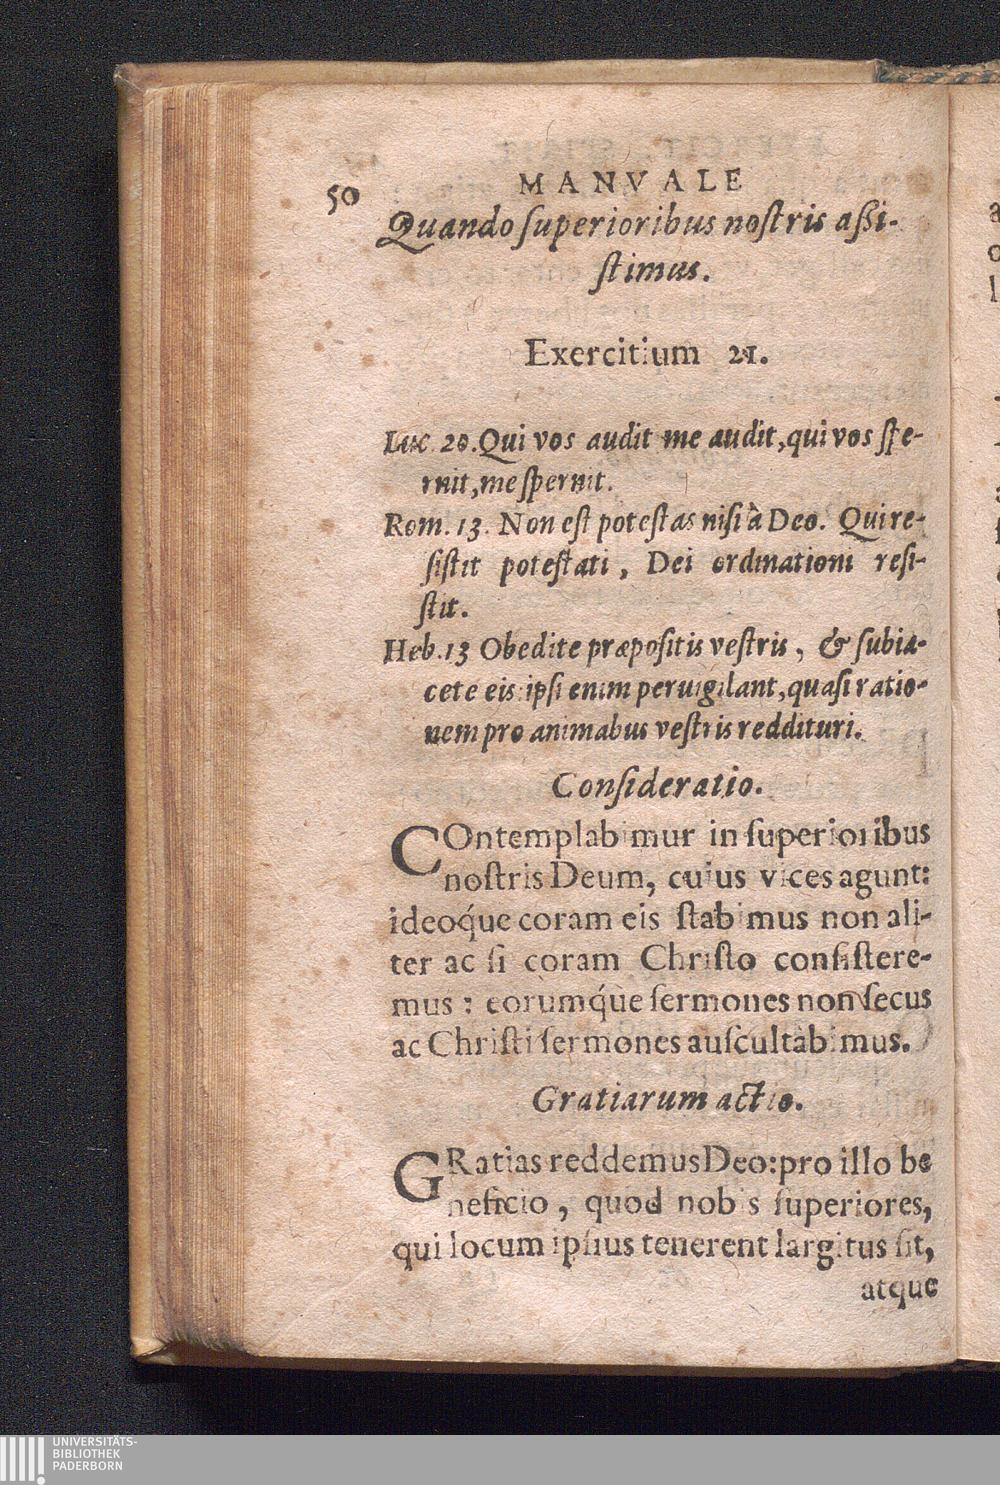 50
MANVALE
Quando ſuperioribus noſtris aſſi-
ſtimus.
Exercitium 21.
Luc. 20. Qui vos audit me audit, qui vos ſpe-
rnit, me ſpernit.
Rom. 13. Non eſt poteſtas niſi à Deo. Qui re-
ſiſtit poteſtati, Dei ordinationi reſi-
ſtit.
Heb. 13 Obedite præpoſitis veſtris, & ſubia-
cete eis: ipſi enim peruigilant, quaſi ratio-
nem pro animabus veſtris reddituri.
Conſideratio.
COntemplabimur in ſuperioribus
noſtris Deum, cuius vices agunt:
ideoq́ue coram eis ſtabimus non ali-
ter ac ſi coram Chriſto conſiſtere-
mus: eorumq́ue ſermones non ſecus
ac Chriſti ſermones auſcultabimus.
Gratiarum actio.
GRatias reddemus Deo: pro illo be
neficio, quod nobis ſuperiores,
qui locum ipſius tenerent largitus ſit,
atque
UNIVERSITÄTS-
BIBLIOTHEK
PADERBORN